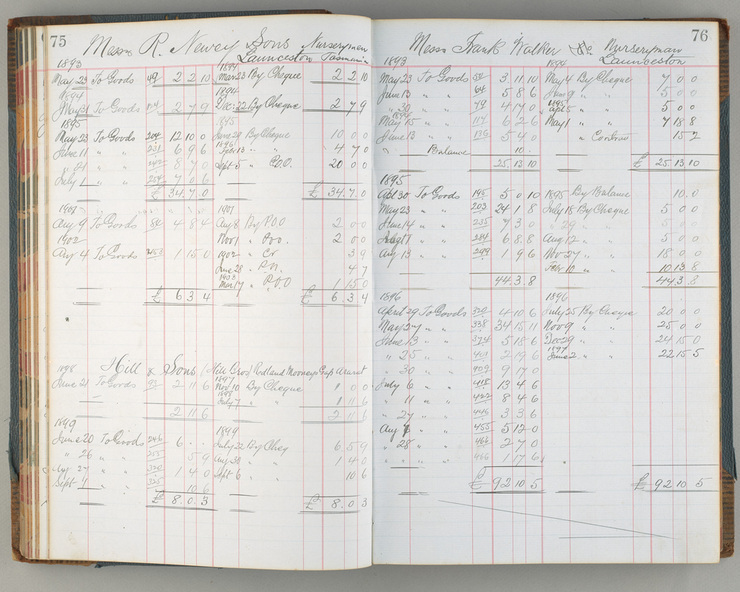 75
Messrs R. Newey & Sons Nurserymen
Launceston Tasmania
1893 1894
May 23 To Goods 49 2 2 10 Mar 23 By Cheque 2 2 10
1894 1894
May 31 To Goods 2 7 9 Dec 22 By Cheque 2 7 9
1895 1895
May 23 To Goods 204 12 10 0 By Cheque 10 0 0
June 11 " " 231 6 9 6 4 7 0
" " 8 7 0 Sept 5 " P.O.O. 20 0 0
July 1 " " 7 0 6
£ 34.7.0 £ 34.7.0
1901 1901
Aug 9 To Goods 4 8 4 Aug 8 By P.O.O 2 0 0
1902 Nov 1 " P.o.o. 2 0 0
Aug 4 To Goods 1 15 0 1902 " Cr 3 9
June 28 " P.N. 4 7
1903
Mar 17 " P.O.O 1 15 0
£ 6 3 4 £ 6.3.4
1898 Hill & Sons
June 21 To Goods 2 11 6 1897
Nov 10 By Cheque 1 0 0
1898
July 7 " 1 11 6
2 11 6 2 11 6
1899 1899
June 20 To Goods 246 6 " " July 22 By Cheq 6 5 9
" 26 " " 5 9 Aug 30 " 1 4 0
Aug 27 " " 320 1 4 0 Sept 6 " 10 6
Sept 4 " " 10 6
£ 8.0.3 £ 8.0.3
76
Messrs Frank Walker & Co Nurserymen
Launceston
1893 1894
May 23 To Goods 50 3 11 10 May 4 By Cheque 7 0 0
June 13 " " 64 5 8 6 June 9 " 5 0 0
" 30 " " 79 4 17 0 1895 Apl 5 " 5 0 0
1894
May 15 " " 117 6 2 6 May 1 " 7 18 8
June 13 " " 136 5 4 0 " Contra 15 2
" Balance 10 "
25 13 10 £ 25 13 10
1895
Apl 30 To Goods 195 5 0 10 1895 By Balance 10 0
May 23 " " 203 24 1 8 July 18 By Cheque 5 0 0
June 14 " " 235 7 3 0 " 29 " 5 0 0
July 17 " " 264 6 8 8 Aug 12 " 5 0 0
Aug 13 " " 299 1 9 6 Nov 27 " 18 0 0
Feb 10 " 10 13 8
44 3 8 44 3 8
1896 1896
April 29 To Goods 4 10 6 July 25 By Cheque 20 0 0
May 27 " " 338 34 15 11 Nov 9 " 25 0 0
June 13 " " 374 5 18 6 Dec 29 " 24 15 0
1897
" 25 " " 409 2 19 6 June 2 " 22 15 5
" 30 " " 409 9 17 0
July 6 " " 418 13 4 6
" 11 " " 422 8 4 6
" 27 " " 446 3 3 6
Aug 7 " " 455 5 12 0
" 28 " " 466 2 7 0
" " " 466 1 17 6
£ 92 10 5 £ 92 10 5